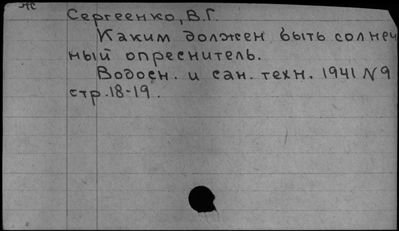 Ж
Сергеенко, В.Г.
Каким должен быть солнеч
ный опреснитель.
Водосн. и сан. техн. 1941 N 9
стр. 18-19.